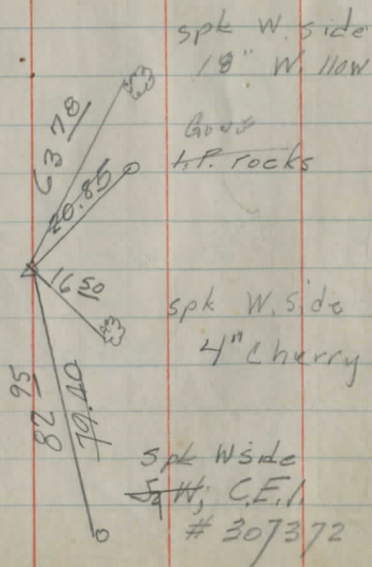 spk W. side
18" Willow
63 78
Gone
I.P. rocks
20.85
16 50
spk W. side
4" Cherry
82 95
79.40
spk W side
S2 W, C.E.I.
# 307372